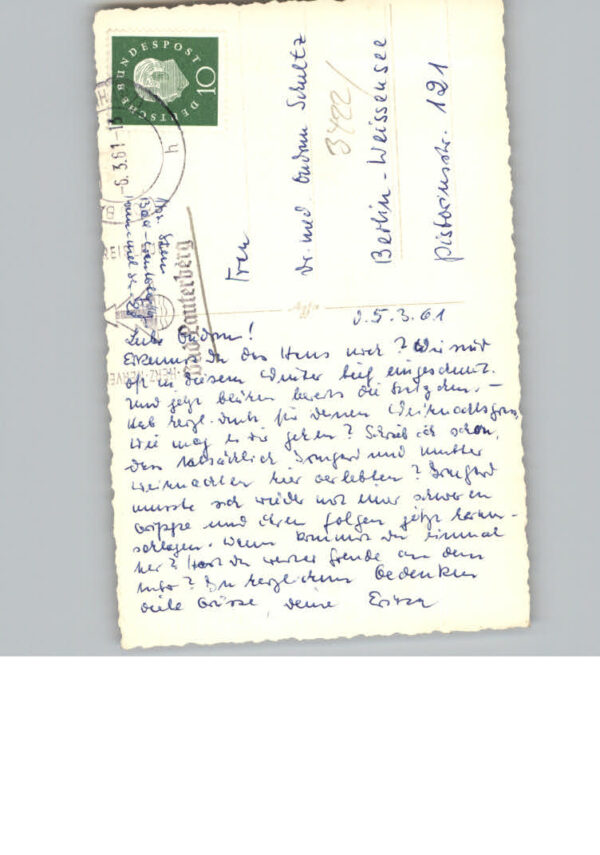 DEUTSCHE BUNDESPOST
10
-6.3.61-13
h
Bad Lauterberg
HERZ NERVE
Frau
Dr. med. Gudrun Schultz
3422/
Berlin-Weissensee
Pistoriusstr. 121
Agfa
d. 5.3.61
Liebe Gudrun!
Erkennst du das Haus noch? Wir sind
oft in diesem Winter tief eingeschneit.
Und jetzt blühen bereits die
Hab herzl. Dank für deinen Weihnachtsgruss,
wie mag es dir gehen? Schrieb ich schon,
dass tatsächlich Irmgard und Mutter
Weihnachten hier verlebten? Irmgard
musste sich wieder mit einer schweren
Grippe und ihren Folgen jetzt herum-
schlagen. Wann kommst du einmal
her? Hast du weiter Freude an dem
Auto? In herzlichem Gedenken
viele Grüsse, deine